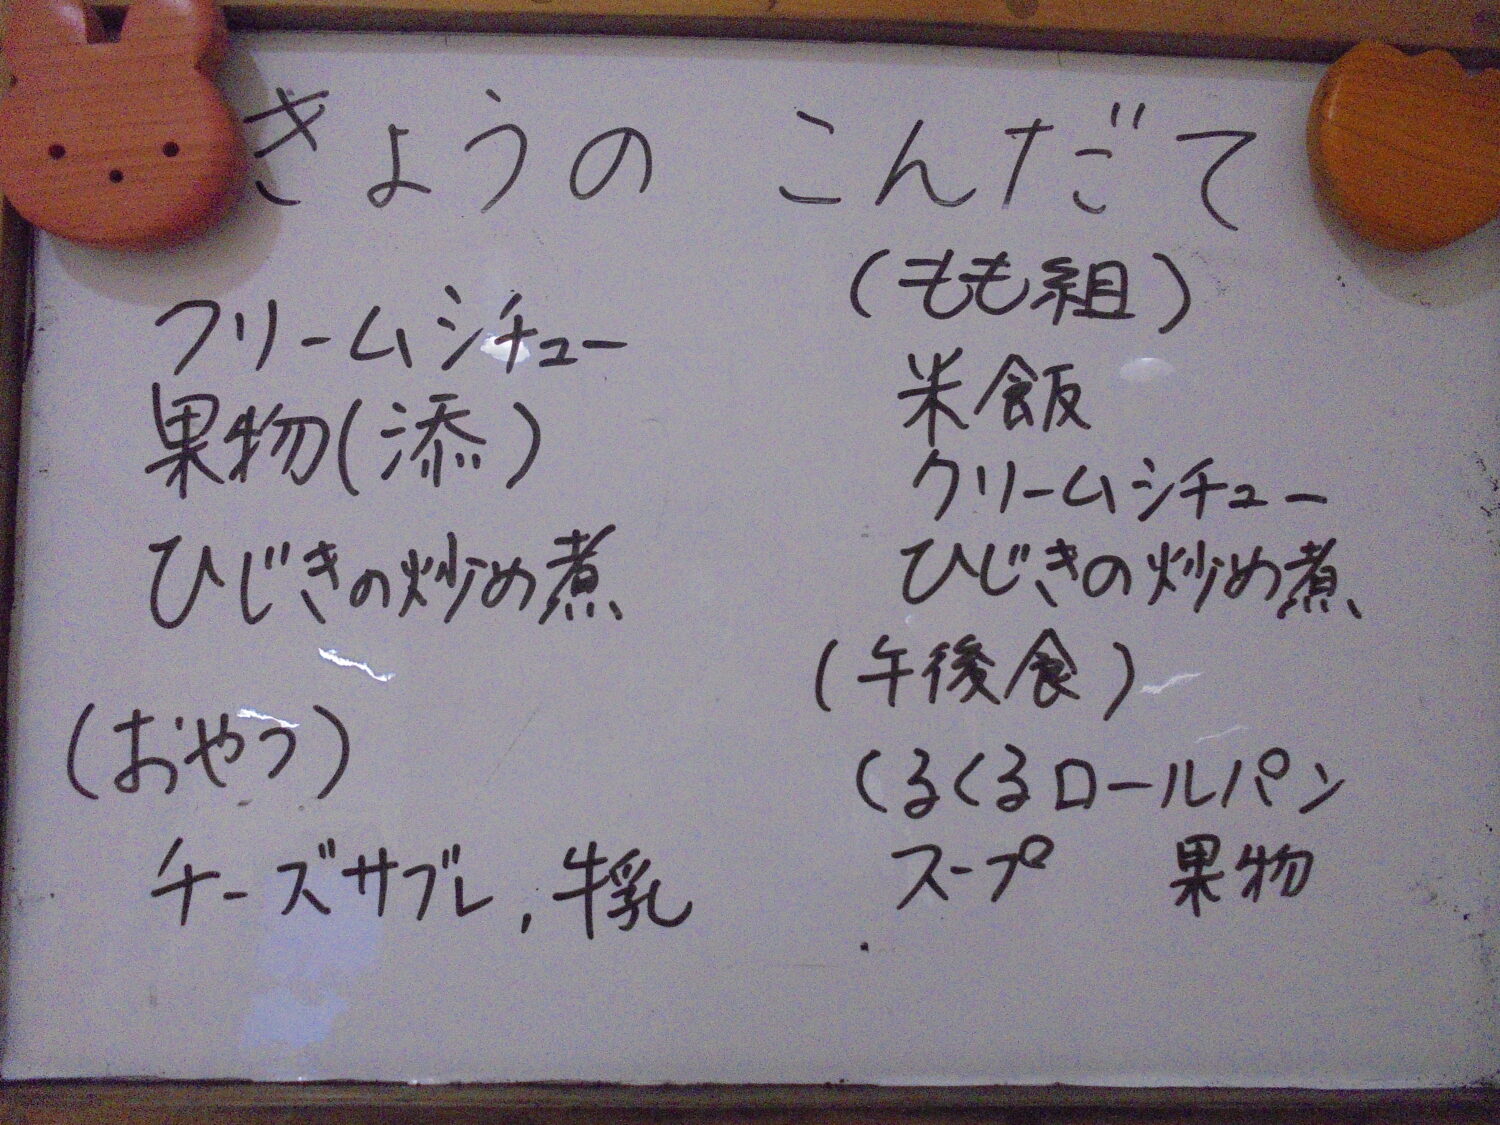 きょうの こんだて
クリームシチュー
果物(添)
ひじきの炒め煮
(おやつ)
チーズサブレ,牛乳
(もも組)
米飯
クリームシチュー
ひじきの炒め煮
(午後食)
くるくるロールパン
スープ 果物